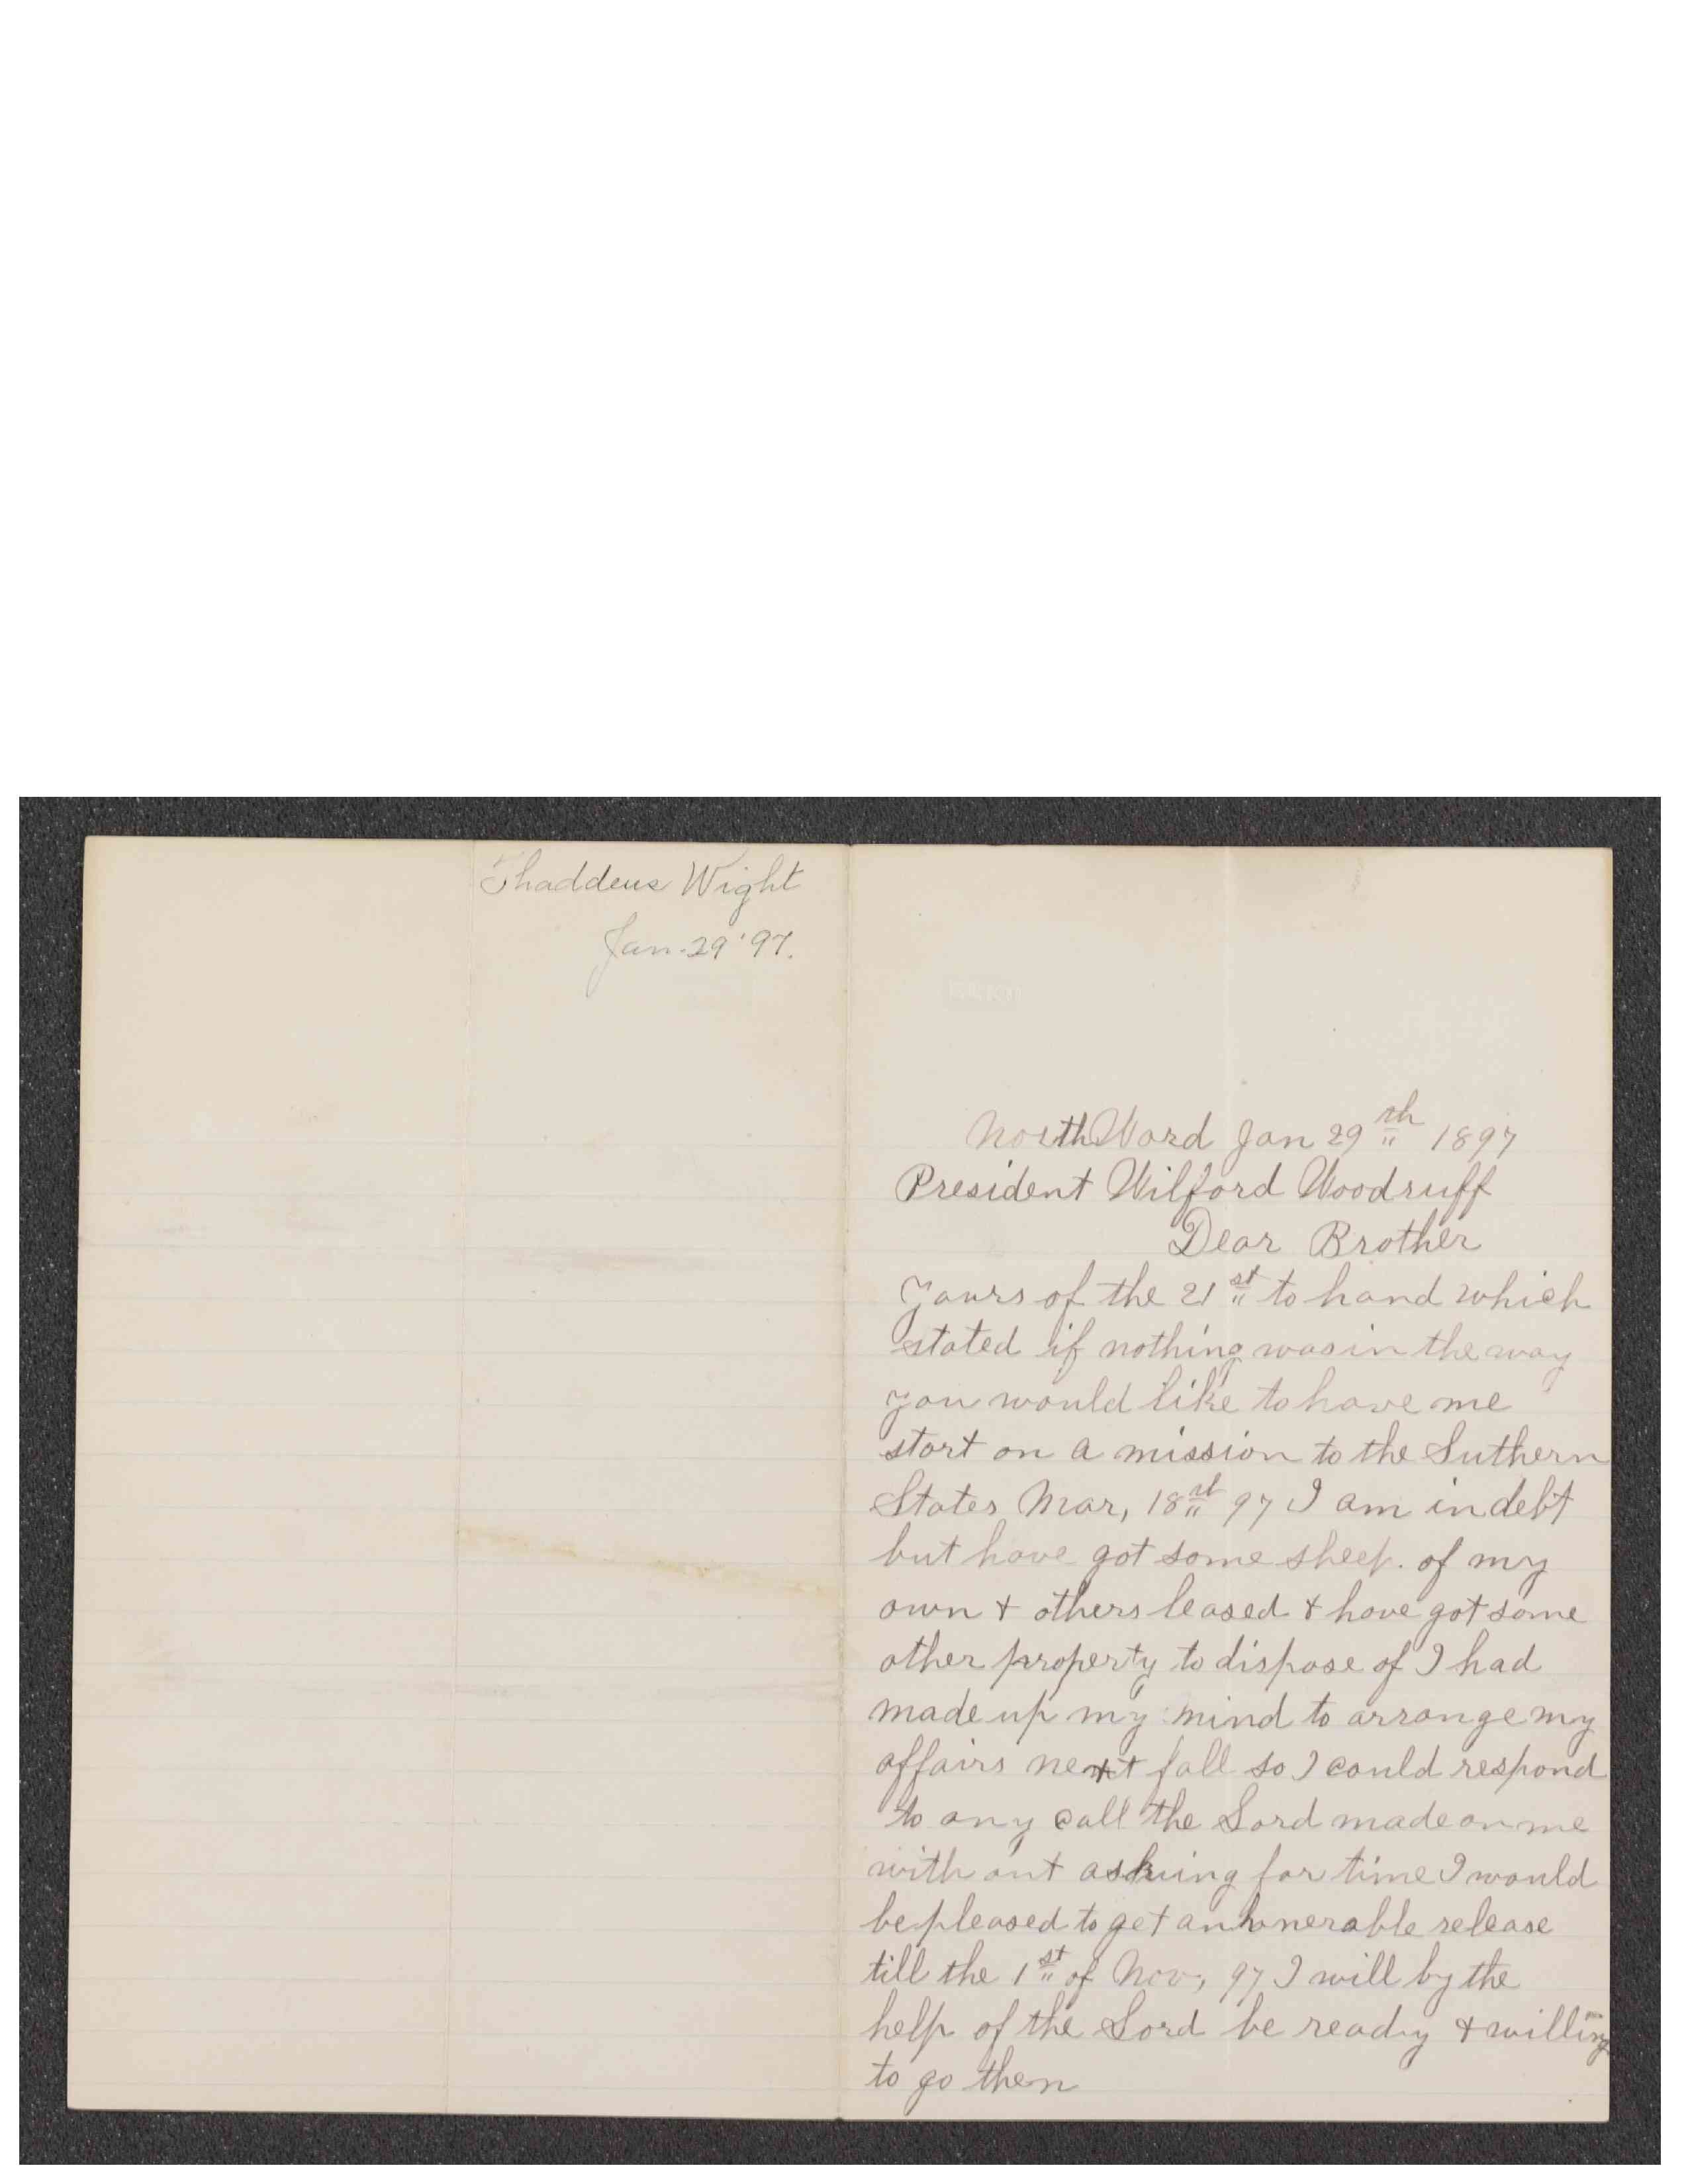 Thaddeus Wight
Jan. 29 '97.
North Ward Jan 29th 1897
President Wilford Woodruff
Dear Brother
Yours of the 21st to hand which
stated if nothing was in the way
you would like to have me
start on a mission to the Suthern
States Mar, 18st 97 I am in debt
but have got some sheep. of my
own + others leased + have got some
other property to dispose of I had
made up my mind to arrange my
affairs next fall so I could respond
to any call the Lord made on me
with out asking for time I would
be pleased to get an honerable release
till the 1st of Nov, 97 I will by the
help of the Lord be ready + willing
to go then